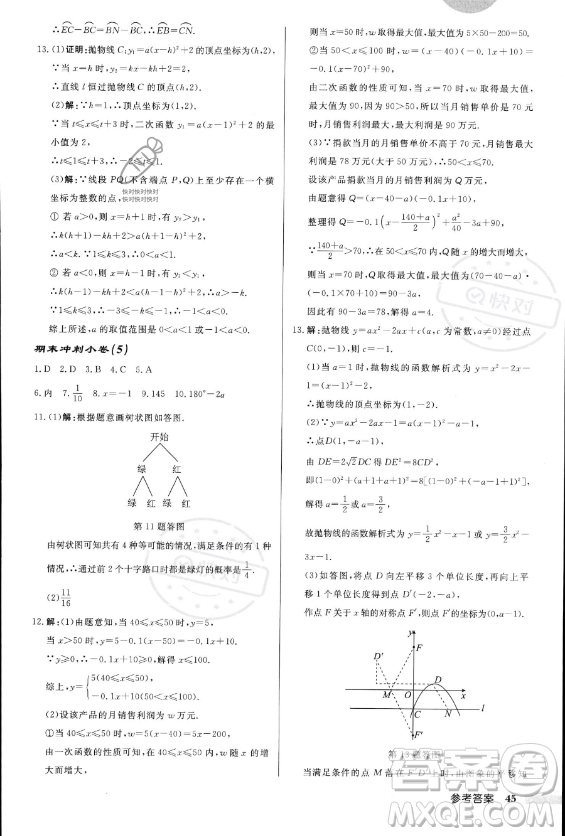 ∴EC−BC=BN−BC,∴EB=CN.
13.(1)证明:抛物线C₁y₁=a(x−h)²+2的顶点坐标为(h,2),
∵当x=h时,y₂=kh−kh+2=2,
∴直线l恒过抛物线C的顶点(h,2).
(2)解:∵h=1,∴顶点坐标为(1,2).
∵当t≤x≤t+3时,二次函数y₁=a(x−1)²+2的最
小值为2,
∴t≤1≤t+3,∴−2≤t≤1.
(3)解:∵线段PQ(不含端点P,Q)上至少存在一个横
坐标为整数的点,
①若a>0,则x=h+1时,有y₁>y₂,
∴k(h+1)−kh+2>a(h+1−h)²+2,
∴a<k.∵1≤k≤3,∴0<a<1.
②若a<0,则x=h−1时,有y₁<y₂,
∴k(h−1)−kh+2<a(h−1−h)²+2,∴a>−k.
∵1≤k≤3,∴−3≤−k≤−1,∴−1<a<0.
综上所述,a的取值范围是0<a<1或−1<a<0.
期末冲刺小卷(5)
1.D 2.D 3.B 4.C 5.A
6.内 7.1/10 8.x=−1 9.145 10.180°−2α
11.(1)解:根据题意画树状图如答图.
开始
绿 红
绿 红 绿 红
第11题答图
由树状图可知共有4种等可能的情况,满足条件的有1种
情况,∴通过前2个十字路口时都是绿灯的概率是1/4.
(2)11/16
12.解:(1)由题意知,当40≤x≤50时,y=5,
当x>50时,y=5−(x−50)×0.1=10−0.1x,
∵y≥0,∴10−0.1x≥0,∴x≤100.
综上,y={5(40≤x≤50),
−0.1x+10(50<x≤100).
(2)设该产品的月销售利润为w万元.
①当40≤x≤50时,w=5(x−40)=5x−200,
由一次函数的性质可知,当40≤x≤50时,w随x的增
大而增大,
则当x=50时,w取得最大值,最大值为50.
②当50<x≤100时,w=(x−40)(−0.1x+10)=
−0.1(x−70)²+90,
由二次函数的性质知,当x=70时,w取得最大值,最
大值为90.∵90>50,∴当月销售单价是70元
时,月销售利润最大,最大利润是90万元.
(3)∵捐款当月销售单价不高于70元,月销售利润
最高是78万元(大于50万元),∴50<x≤70.
设该产品捐款当月的月销售利润为Q万元.
由题意得Q=(x−40−a)(−0.1x+10),
整理得Q=−0.1(x−(140+a)/2)²+a²/40−3a+90,
∵(140+a)/2>70,∴在50<x≤70内,Q随x的增大而增大,
则当x=70时,Q取得最大值,即(70−40−a)×
(−0.1×70+10)=90−3a,
∴90−3a=78,解得a=4.
13.解:抛物线y=ax²−2ax+c(a,c为常数,a≠0)经过点
C(0,−1),则c=−1.
(1)当a=1时,抛物线的函数解析式为y=x²−2x−
1=(x−1)²−2,
∴抛物线的顶点坐标为(1,−2).
(2)∵y=ax²−2ax−1=a(x−1)²−a−1,
∴点D(1,−a−1).
由DE=2√2DC得DE²=8CD²,
解得a=1/2或a=3/2.
故抛物线的函数解析式为y=1/2x²−x−1或y=3/2x²−
3x−1.
(3)如答图,将点D向左平移3个单位长度,再向上平
移1个单位长度得到点D′(−2,−a),
作点F关于x轴的对称点F′,则点F′的坐标为
y D′ F D M O x C N l F′
第13题答图
当满足条件的点M落在F′D′上时,由图象的平移知
参考答案 45
快对